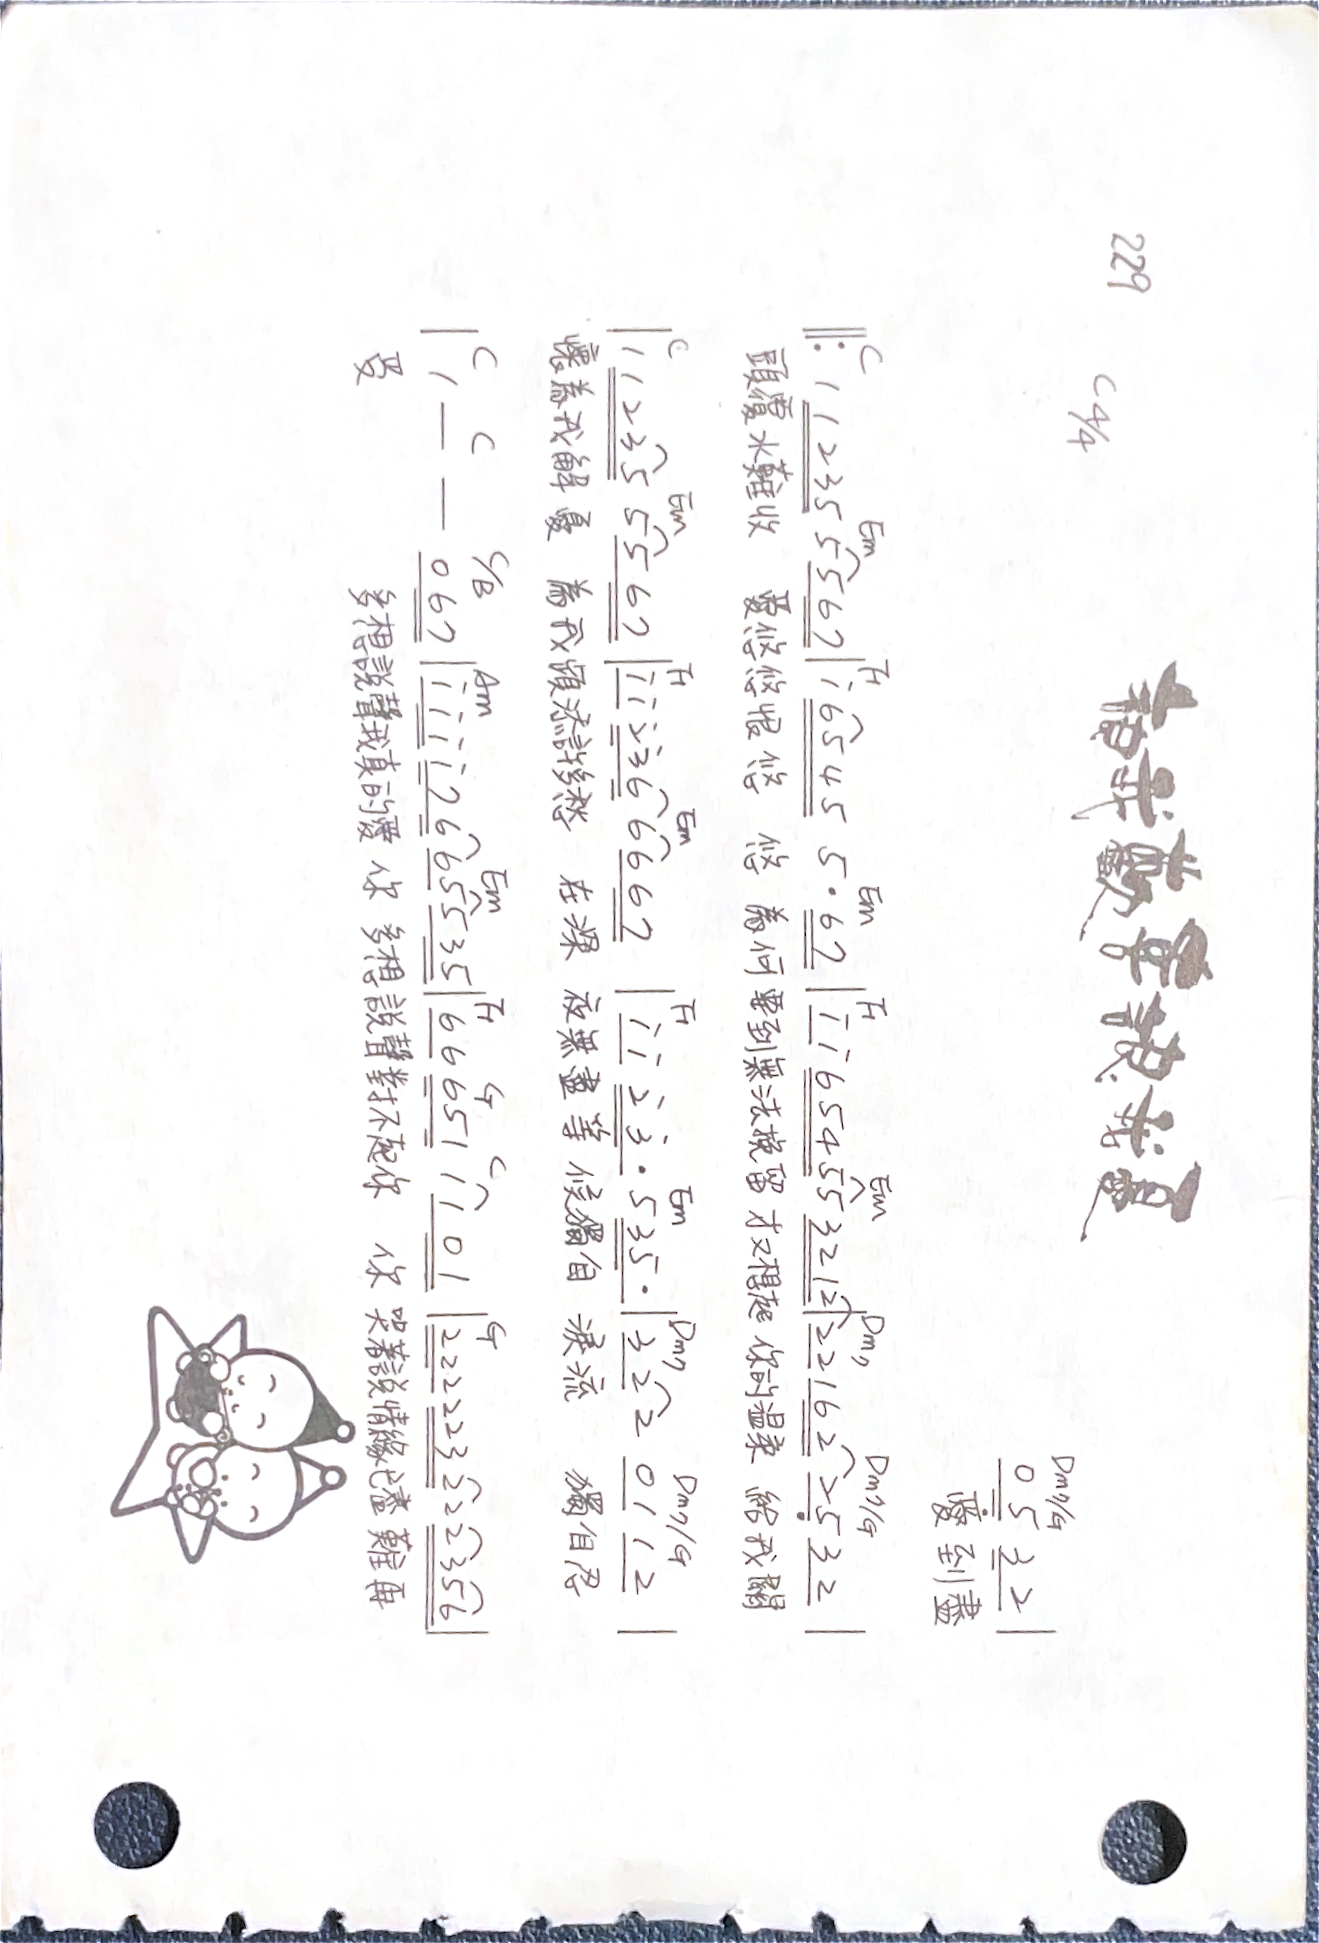 讓我歡喜讓我憂
229
C 4/4
Dm7/G
0 5 3 2 |
愛到盡
C Em F Em F Em Dm7 Dm7/G
‖: 1 1 2 3 5 5 5 6 7 | i 6 5 4 5 5 · 6 7 | i i 6 5 4 5 5 3 2 1 2 | 2 2 1 6 2 2 5 3 2 |
頭覆水難收 愛悠悠恨悠 悠 為何要到無法挽留 才又想起 你的溫柔 給我關
C Em F Em F Em Dm7 Dm7/G
| 1 1 2 3 5 5 5 6 7 | i i 2 3 6 6 6 6 7 | i i 2 3 · 5 3 5 · | 3 2 2 0 1 1 2 |
懷為我解憂 為我頭添許多愁 在深 夜無盡等候獨自 淚流 獨自忍
C C C/B Am Em F G C G
| 1 — — 0 6 7 | i i i i 7 6 6 5 5 3 5 | 6 6 6 5 1 1 1 0 1 | 2 2 2 2 2 3 2 2 2 3 5 6 |
受 多想說聲我真的愛你 多想說聲對不起你 你 哭著說情緣已盡難再